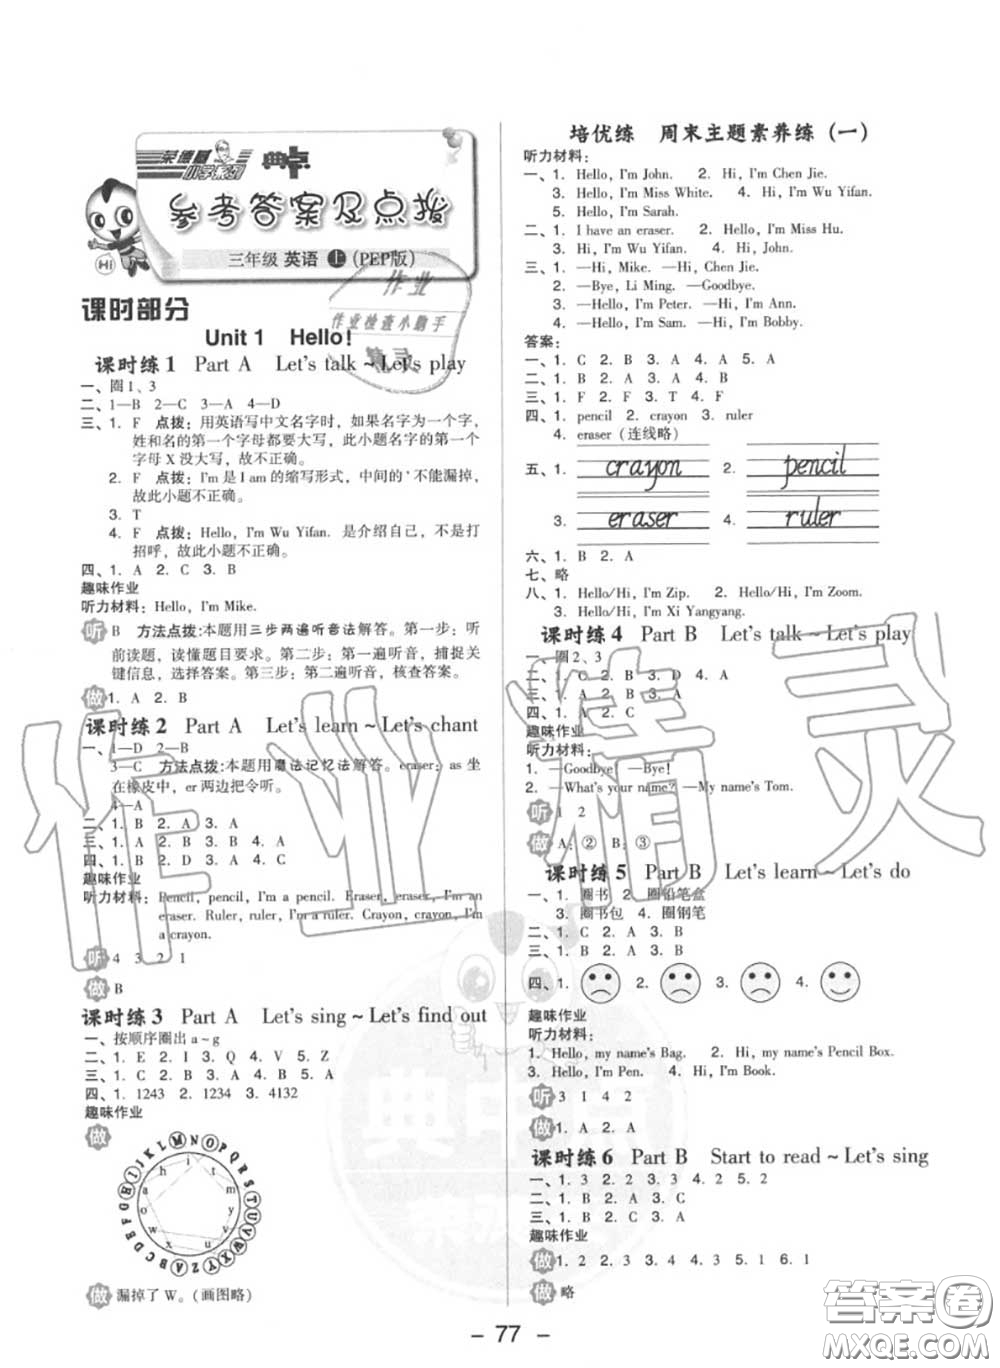 荣德基
小学系列
典点
参考答案及点拨
三年级 英语 上 (PEP版)
Hi
作业
作业检查小助手
精灵
课时部分
Unit 1 Hello!
课时练1 Part A Let's talk ~ Let's play
一、圈1、3
二、1—B 2—C 3—A 4—D
三、1. F 点拨：用英语写中文名字时，如果名字为一个字，
姓和名的第一个字母都要大写，此小题名字的第一个
字母 X 没大写，故不正确。
2. F 点拨：I'm是 I am 的缩写形式，中间的 ' 不能漏掉，
故此小题不正确。
3. T
4. F 点拨：Hello, I'm Wu Yifan. 是介绍自己，不是打
招呼，故此小题不正确。
四、1. A 2. C 3. B
趣味作业
听力材料：Hello, I'm Mike.
听 B 方法点拨：本题用三步两遍听音法解答。第一步：听
前读题，读懂题目要求。第二步：第一遍听音，捕捉关
键信息，选择答案。第三步：第二遍听音，核查答案。
做 1. A 2. B
课时练2 Part A Let's learn ~ Let's chant
一、1—D 2—B
3—C 方法点拨：本题用魔法记忆法解答。eraser: as 坐
在橡皮中，er 两边把令听。
4—A
二、1. B 2. A 3. A
三、1. A 2. B 3. B 4. A
四、1. D 2. B 3. C 4. A
趣味作业
听力材料：Pencil, pencil, I'm a pencil. Eraser, eraser, I'm an
eraser. Ruler, ruler, I'm a ruler. Crayon, crayon, I'm
a crayon.
听 4 3 2 1
做 B
课时练3 Part A Let's sing ~ Let's find out
一、按顺序圈出 a ~ g
二、1. E 2. I 3. Q 4. V 5. Z
三、1. C 2. A 3. B 4. A 5. C
四、1. 1243 2. 1234 3. 4132
趣味作业
做
A B C D E F G H I J K L M N O P Q R S T U V W X Y Z
a h i t m y u x w o
做 漏掉了 W。(画图略)
培优练 周末主题素养练（一）
听力材料：
一、1. Hello, I'm John. 2. Hi, I'm Chen Jie.
3. Hello, I'm Miss White. 4. Hi, I'm Wu Yifan.
5. Hello, I'm Sarah.
二、1. I have an eraser. 2. Hello, I'm Miss Hu.
3. Hi, I'm Wu Yifan. 4. Hi, John.
三、1. —Hi, Mike. —Hi, Chen Jie.
2. —Bye, Li Ming. —Goodbye.
3. —Hello, I'm Peter. —Hi, I'm Ann.
4. —Hello, I'm Sam. —Hi, I'm Bobby.
答案：
一、1. C 2. B 3. A 4. A 5. A
二、1. B 2. A 3. A 4. B
三、1. F 2. F 3. T 4. F
四、1. pencil 2. crayon 3. ruler
4. eraser（连线略）
五、1. crayon 2. pencil
3. eraser 4. ruler
六、1. B 2. A
七、略
八、1. Hello/Hi, I'm Zip. 2. Hello/Hi, I'm Zoom.
3. Hello/Hi, I'm Xi Yangyang.
课时练4 Part B Let's talk ~ Let's play
一、圈2、3
二、1. C 2. B 3. D 4. A
三、1. A 2. B 3. A
四、1. A 2. C
趣味作业
听力材料：
1. —Goodbye! —Bye!
2. —What's your name? —My name's Tom.
听 1 2
做 A：② B：③
课时练5 Part B Let's learn ~ Let's do
一、1. 圈书 2. 圈铅笔盒
3. 圈书包 4. 圈钢笔
二、1. C 2. A 3. B
三、1. B 2. A 3. B
四、1. 2. 3. 4.
趣味作业
听力材料：
1. Hello, my name's Bag. 2. Hi, my name's Pencil Box.
3. Hello, I'm Pen. 4. Hi, I'm Book.
听 3 1 4 2
做 1. A 2. A
课时练6 Part B Start to read ~ Let's sing
一、1. 3 2. 2 3. 2 4. 2 5. 2
二、1. B 2. A 3. C
三、1. C 2. B 3. A
趣味作业
做 1. 2 2. 3 3. 4 4. 3 5. 1 6. 1
做 略
作业精灵
典中点
答案圈
MXQE.COM
- 77 -